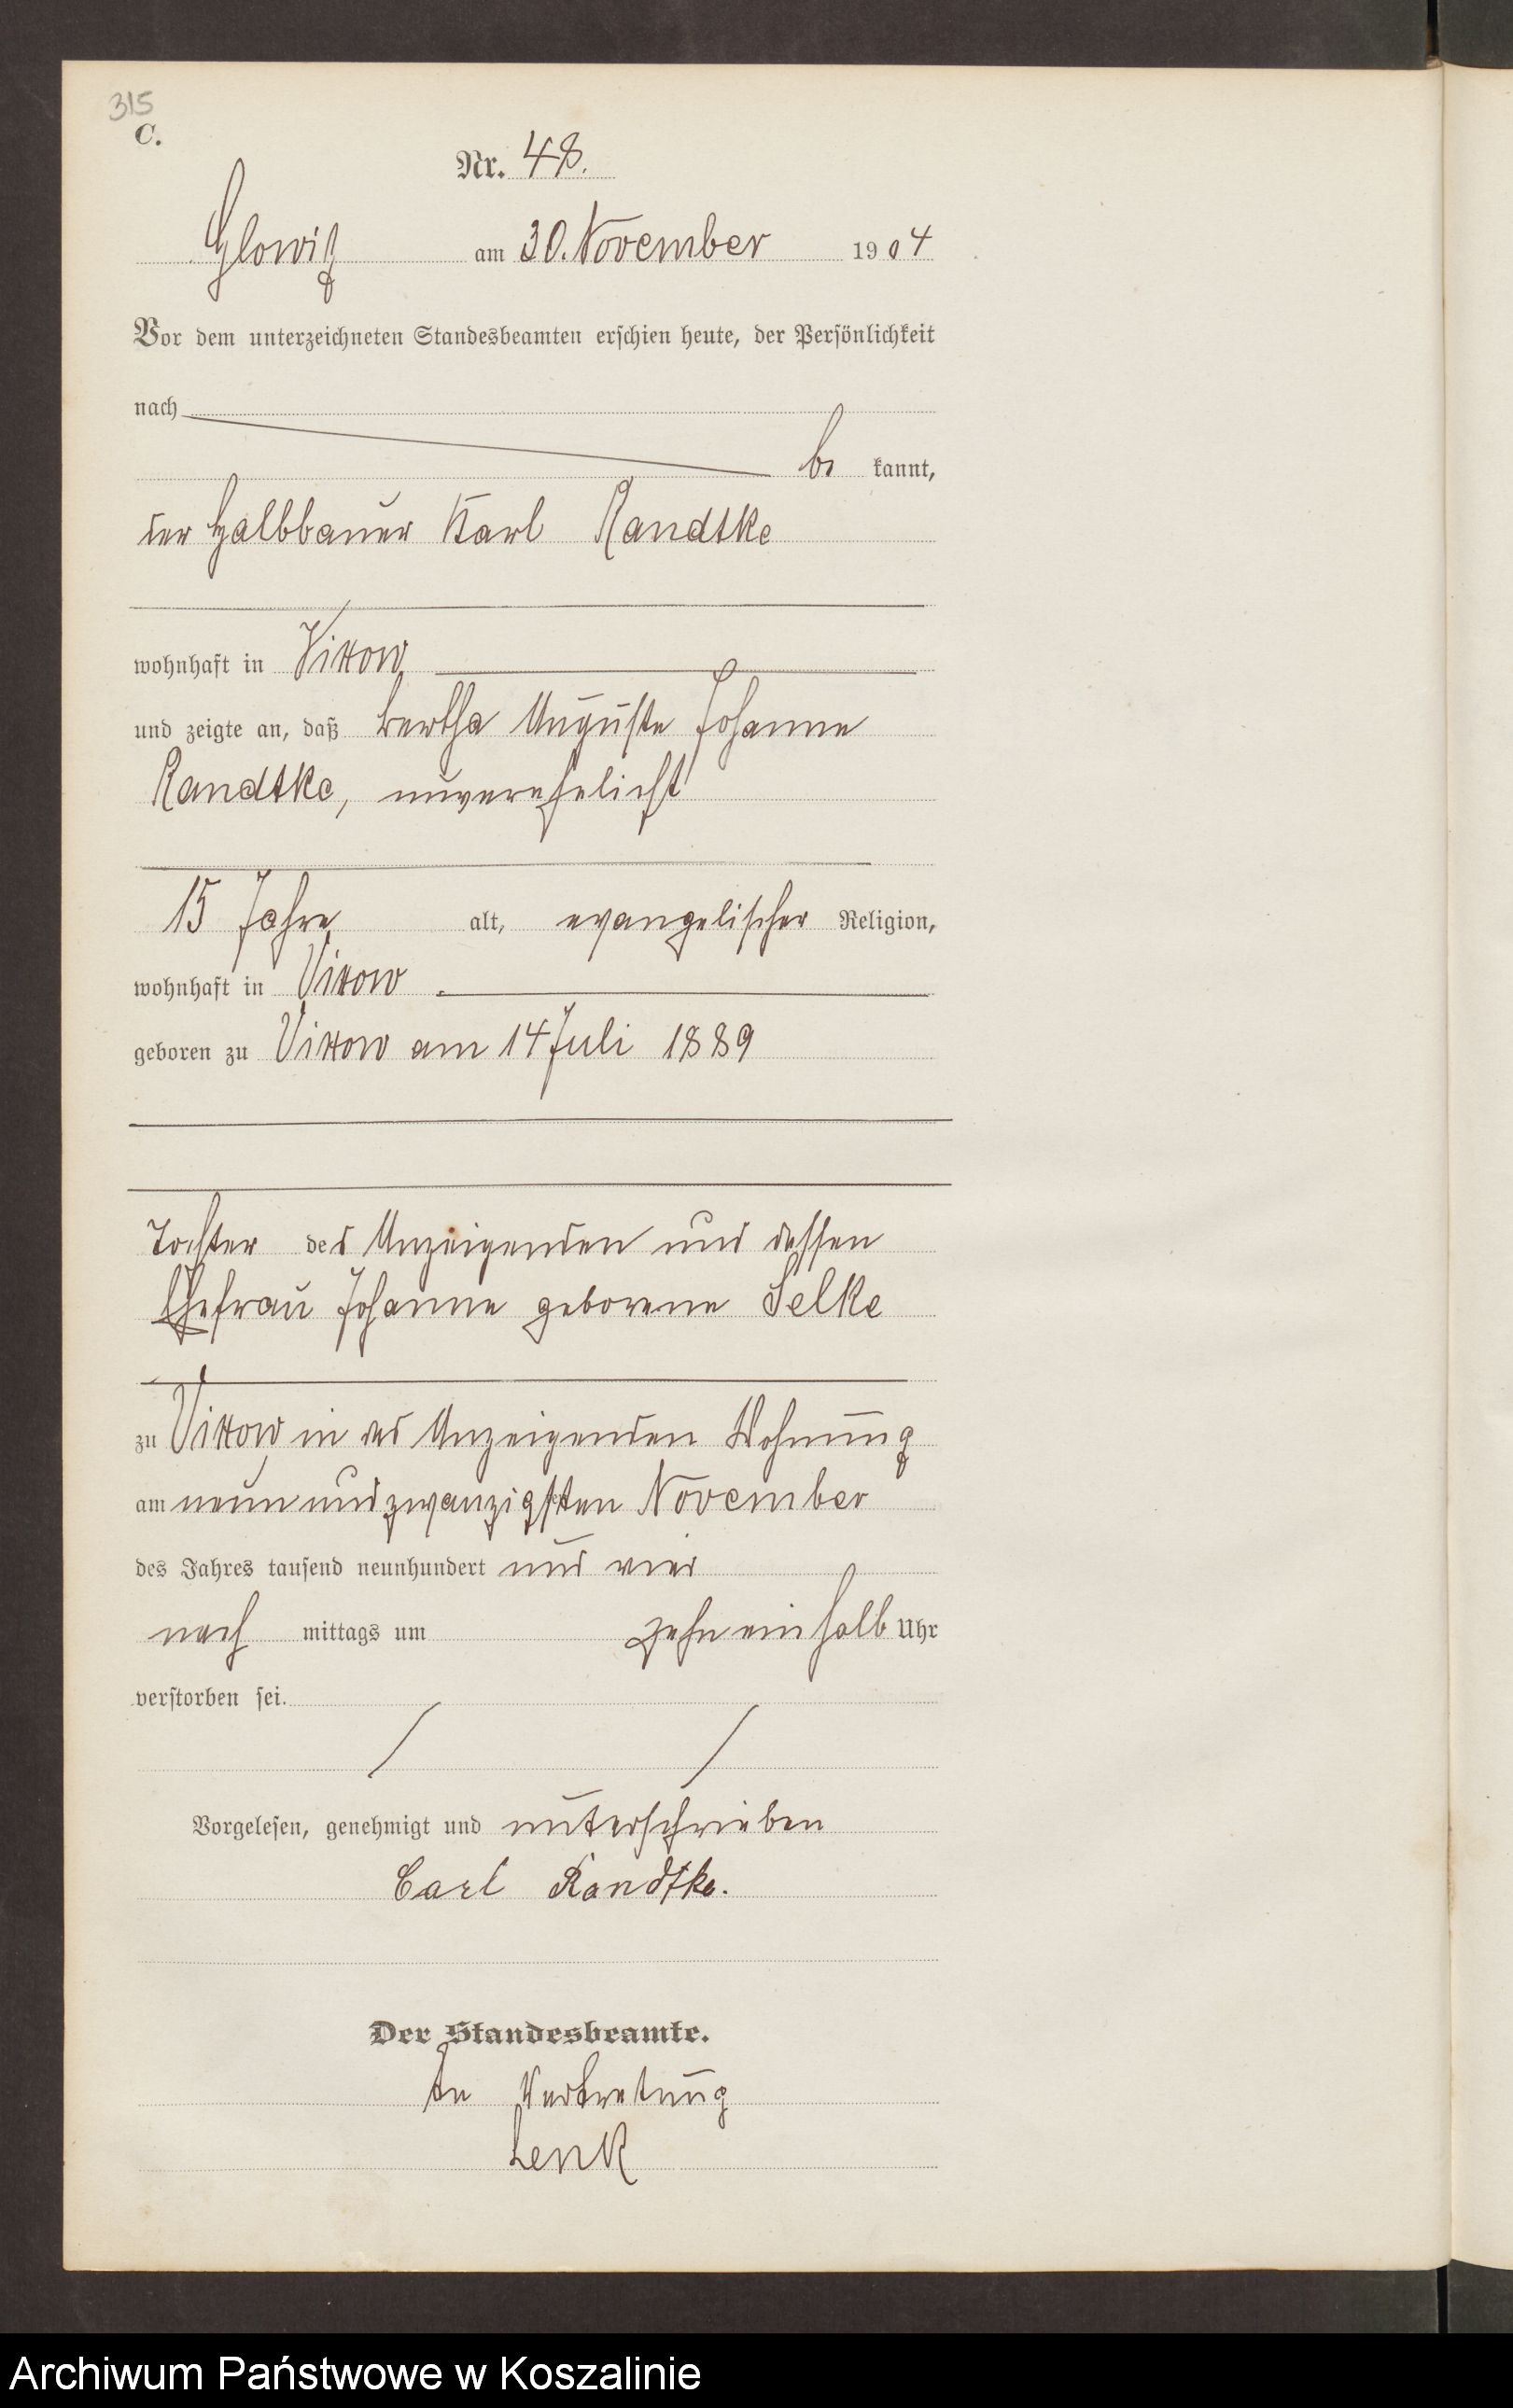 315
C.
Nr. 48.
Glowitz am 30. November 1904
Vor dem unterzeichneten Standesbeamten erschien heute, der Persönlichkeit
nach
be kannt,
der Halbbauer Karl Randtke
wohnhaft in Vixow
und zeigte an, daß Bertha Auguste Johanne
Randtke, unverehelicht
15 Jahre alt, evangelischer Religion,
wohnhaft in Vixow
geboren zu Vixow am 14 Juli 1889
Tochter des Anzeigenden und dessen
Ehefrau Johanne geborene Selke
zu Vixow in des Anzeigenden Wohnung
am neun und zwanzigsten November
des Jahres tausend neunhundert und vier
nach mittags um zehn ein halb Uhr
verstorben sei.
Vorgelesen, genehmigt und unterschrieben
Carl Randtke.
Der Standesbeamte.
In Vertretung
Lenk
Archiwum Państwowe w Koszalinie